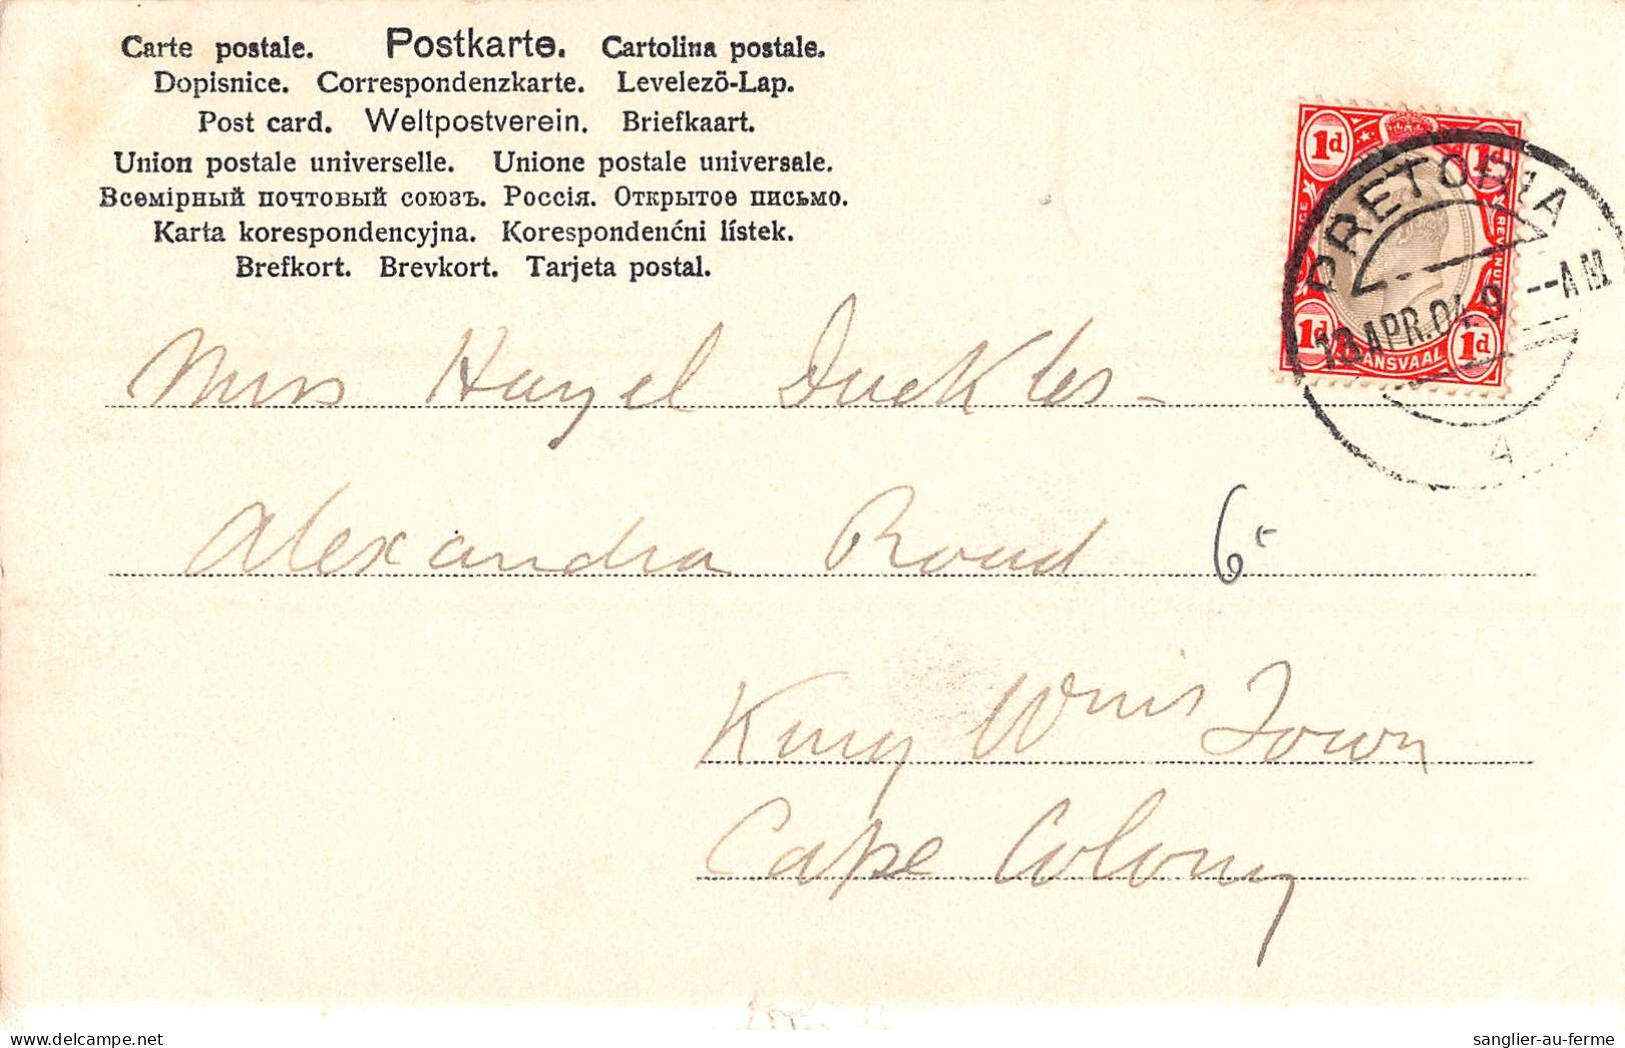 Carte postale. Postkarte. Cartolina postale.
Dopisnice. Correspondenzkarte. Levelező-Lap.
Post card. Weltpostverein. Briefkaart.
Union postale universelle. Unione postale universale.
Всемірный почтовый союзъ. Россія. Открытое письмо.
Karta korespondencyjna. Korespondenćni lístek.
Brefkort. Brevkort. Tarjeta postal.
1d 1d
PRETORIA
13 APR. 04 9 --AM
1d TRANSVAAL 1d
4
Miss Hazel Duckles-
Alexandra Road 6-
King Wms Town
Cape Colony
sanglier-au-ferme